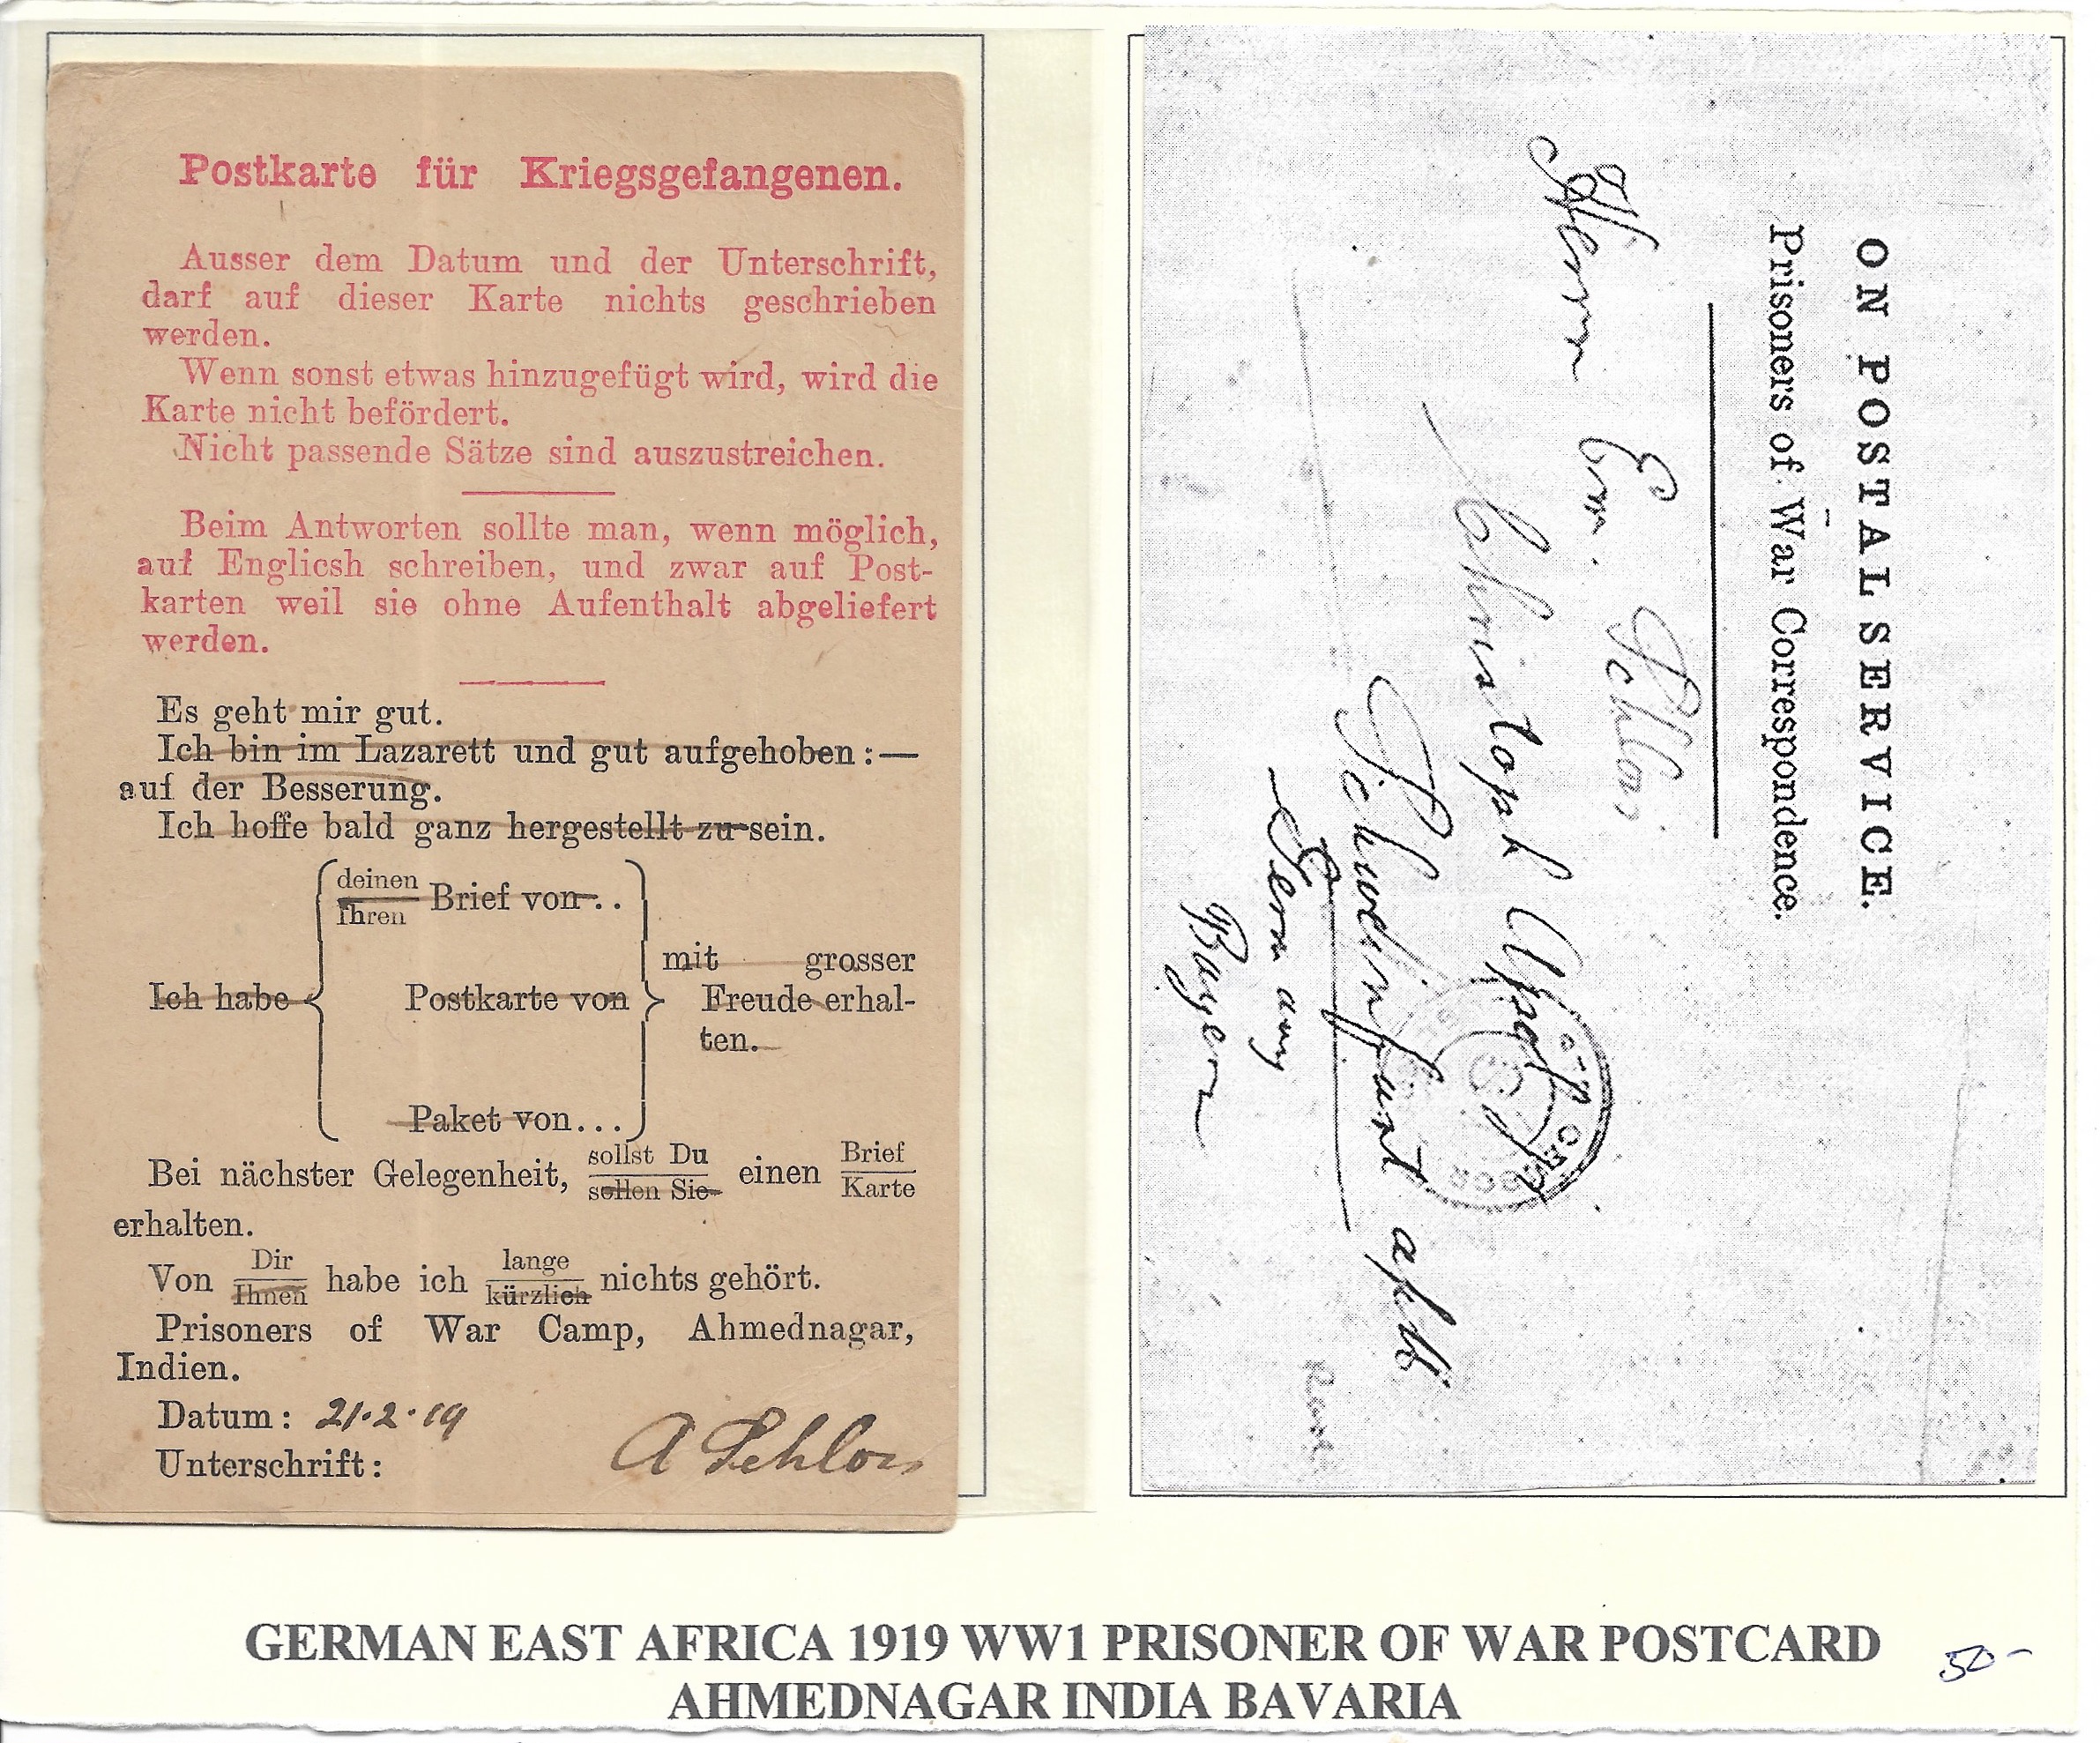 Postkarte für Kriegsgefangenen.
Ausser dem Datum und der Unterschrift,
darf auf dieser Karte nichts geschrieben
werden.
Wenn sonst etwas hinzugefügt wird, wird die
Karte nicht befördert.
Nicht passende Sätze sind auszustreichen.
Beim Antworten sollte man, wenn möglich,
auf Englicsh schreiben, und zwar auf Post-
karten weil sie ohne Aufenthalt abgeliefert
werden.
Es geht mir gut.
Ich bin im Lazarett und gut aufgehoben :—
auf der Besserung.
Ich hoffe bald ganz hergestellt zu sein.
deinen
Ihren
Brief von . .
Ich habe
Postkarte von
Paket von . . .
mit grosser
Freude erhal-
ten.
Bei nächster Gelegenheit, sollst Du einen Brief
sollen Sie Karte
erhalten.
Von Dir habe ich lange nichts gehört.
Ihnen kürzlich
Prisoners of War Camp, Ahmednagar,
Indien.
Datum : 21.2.19
Unterschrift :
A Schlos
ON POSTAL SERVICE.
Prisoners of War Correspondence.
Herrn Em. Schlos
Christoph
Schweinfurt
Germany
Bayern
GERMAN EAST AFRICA 1919 WW1 PRISONER OF WAR POSTCARD
AHMEDNAGAR INDIA BAVARIA
50-